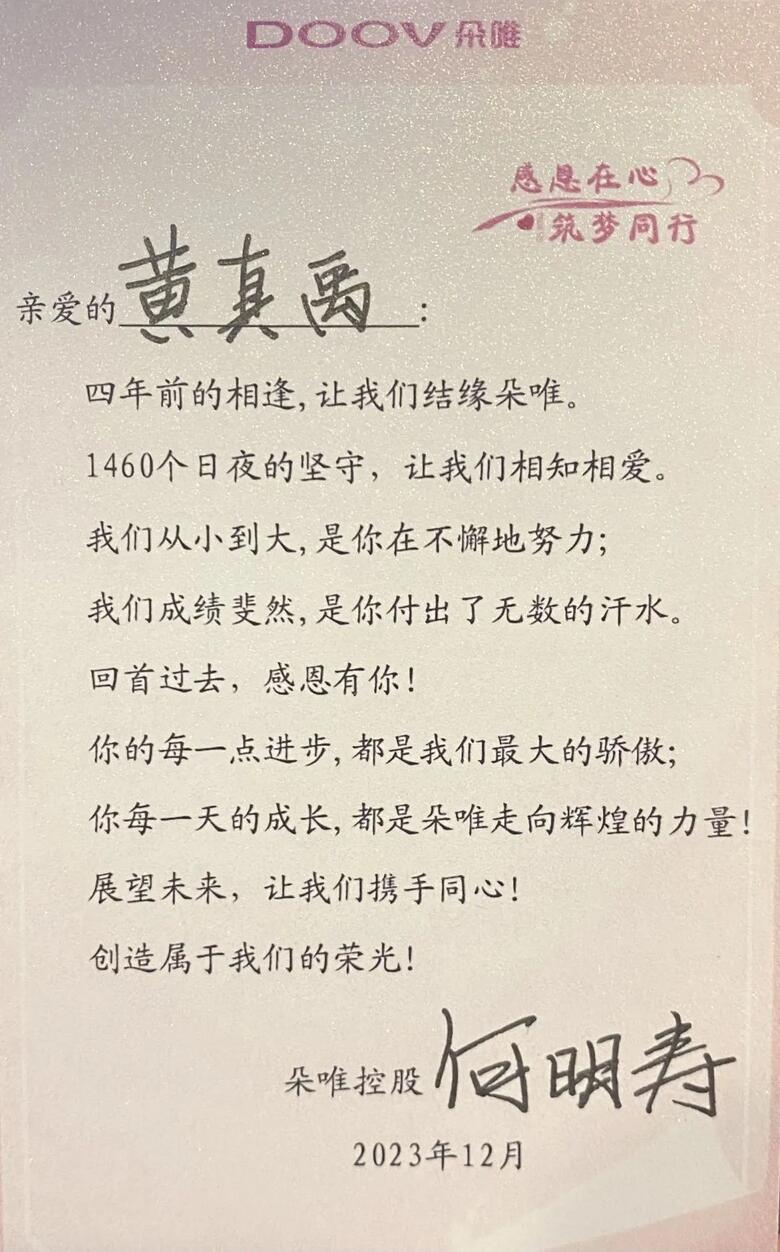 DOOV 朵唯
感恩在心
筑梦同行
亲爱的黄真禹:
四年前的相逢,让我们结缘朵唯。
1460个日夜的坚守，让我们相知相爱。
我们从小到大,是你在不懈地努力;
我们成绩斐然,是你付出了无数的汗水。
回首过去，感恩有你!
你的每一点进步,都是我们最大的骄傲;
你每一天的成长,都是朵唯走向辉煌的力量!
展望未来，让我们携手同心!
创造属于我们的荣光!
朵唯控股 何明寿
2023年12月